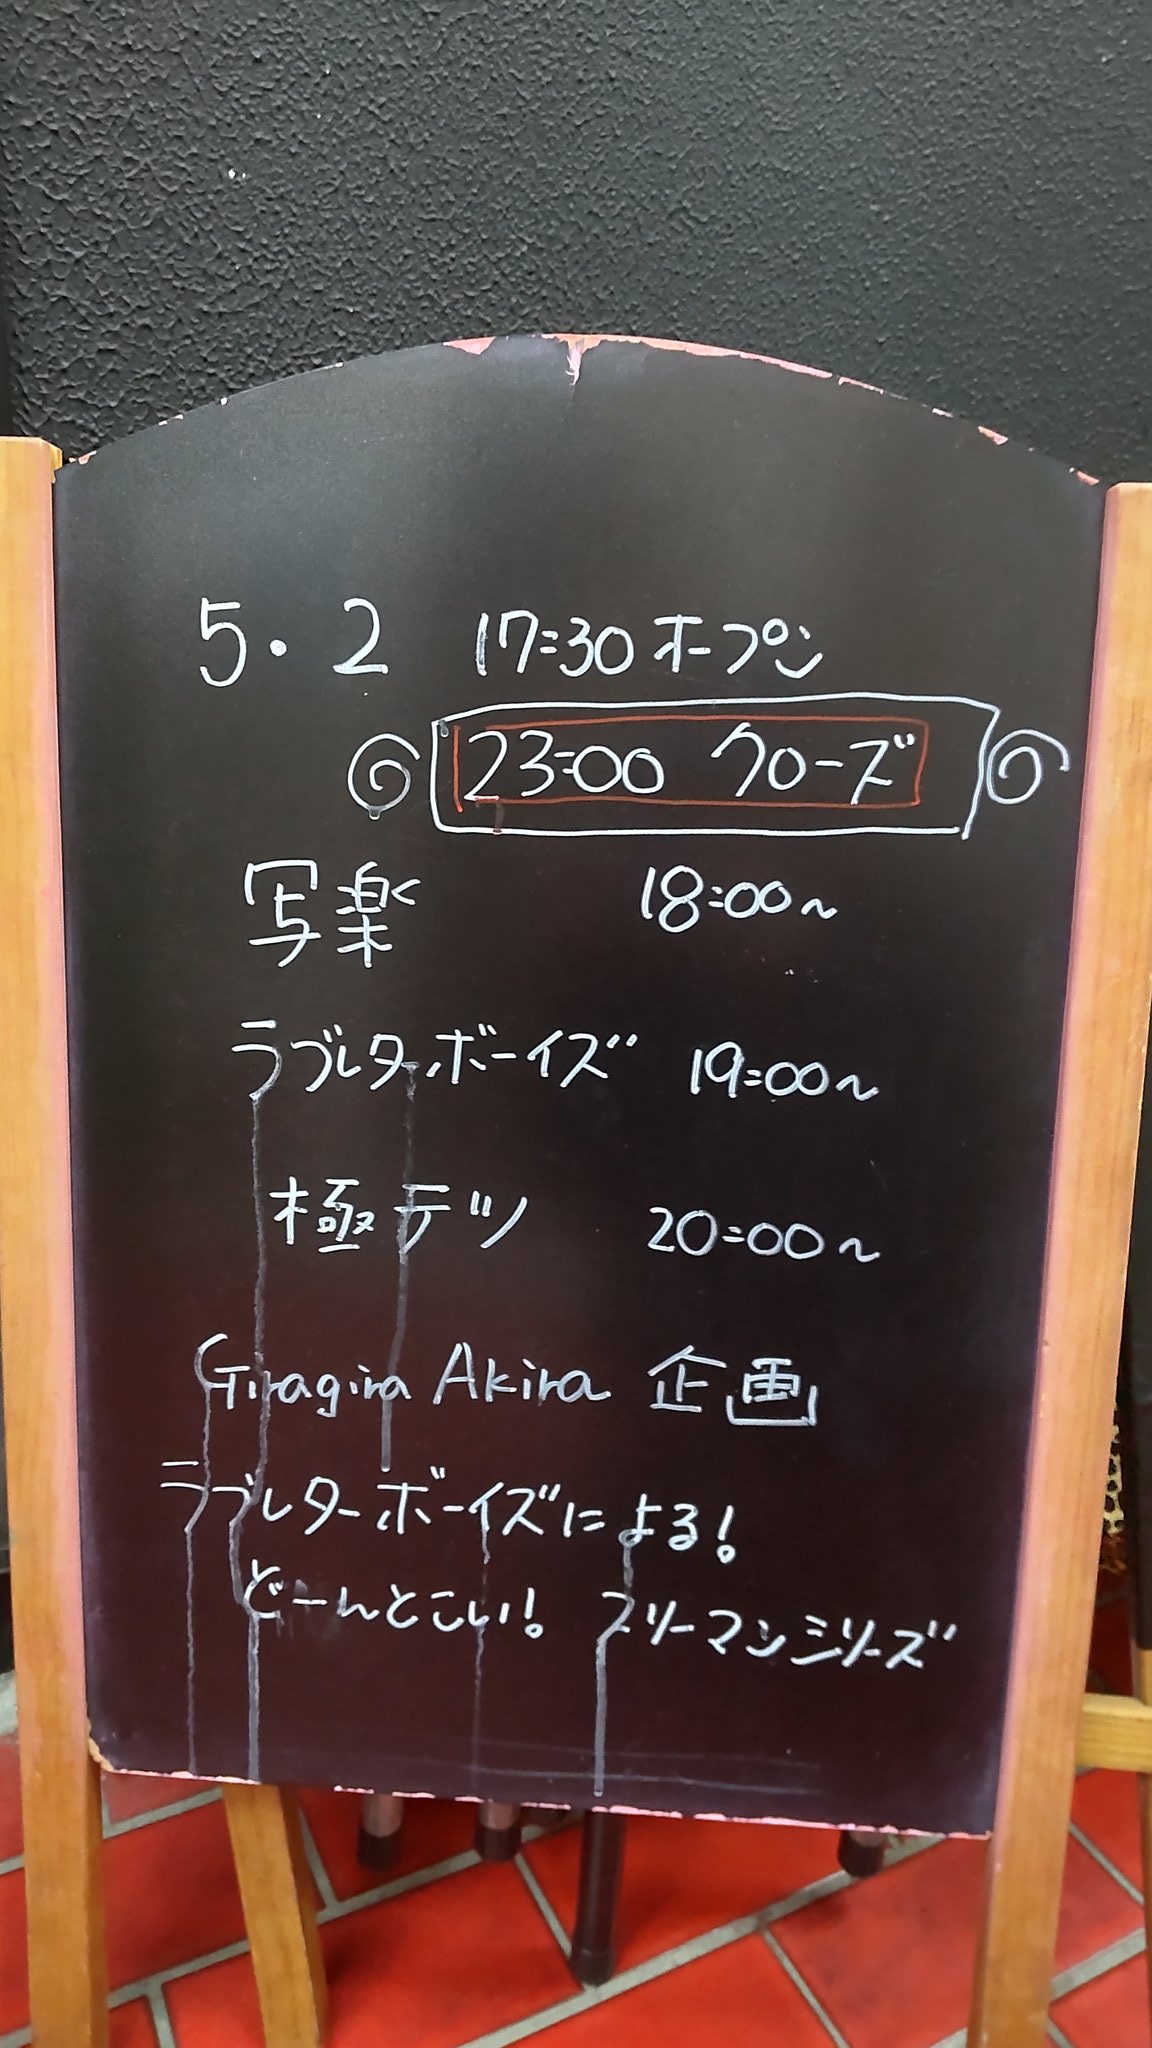 5・2 17:30 オープン
23:00 クローズ
写楽 18:00~
ラブレターボーイズ 19:00~
極テツ 20:00~
Giragira Akira 企画
ラブレターボーイズによる!
どーんとこい! フリーマンシリーズ